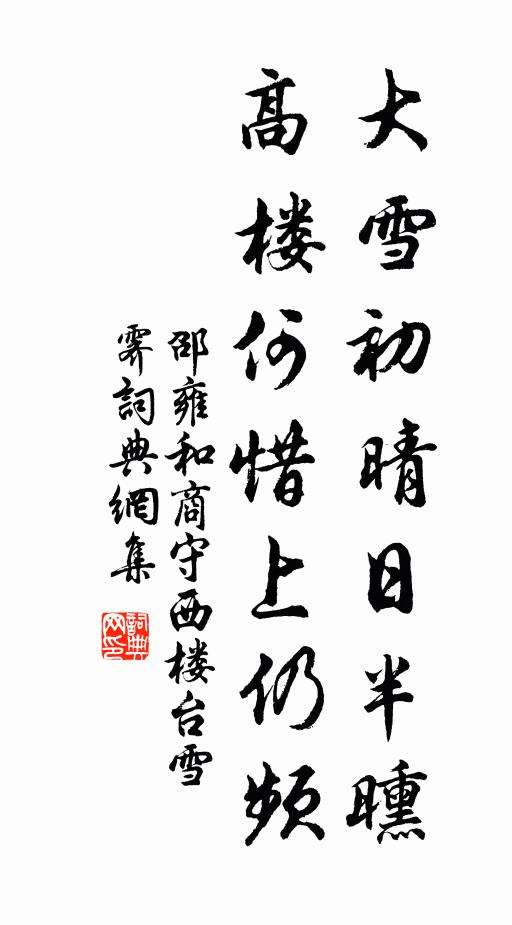 大雪初晴日半曛
高楼何惜上仍频
邵雍和商守西楼台雪
霁詞典網集
詞典网印